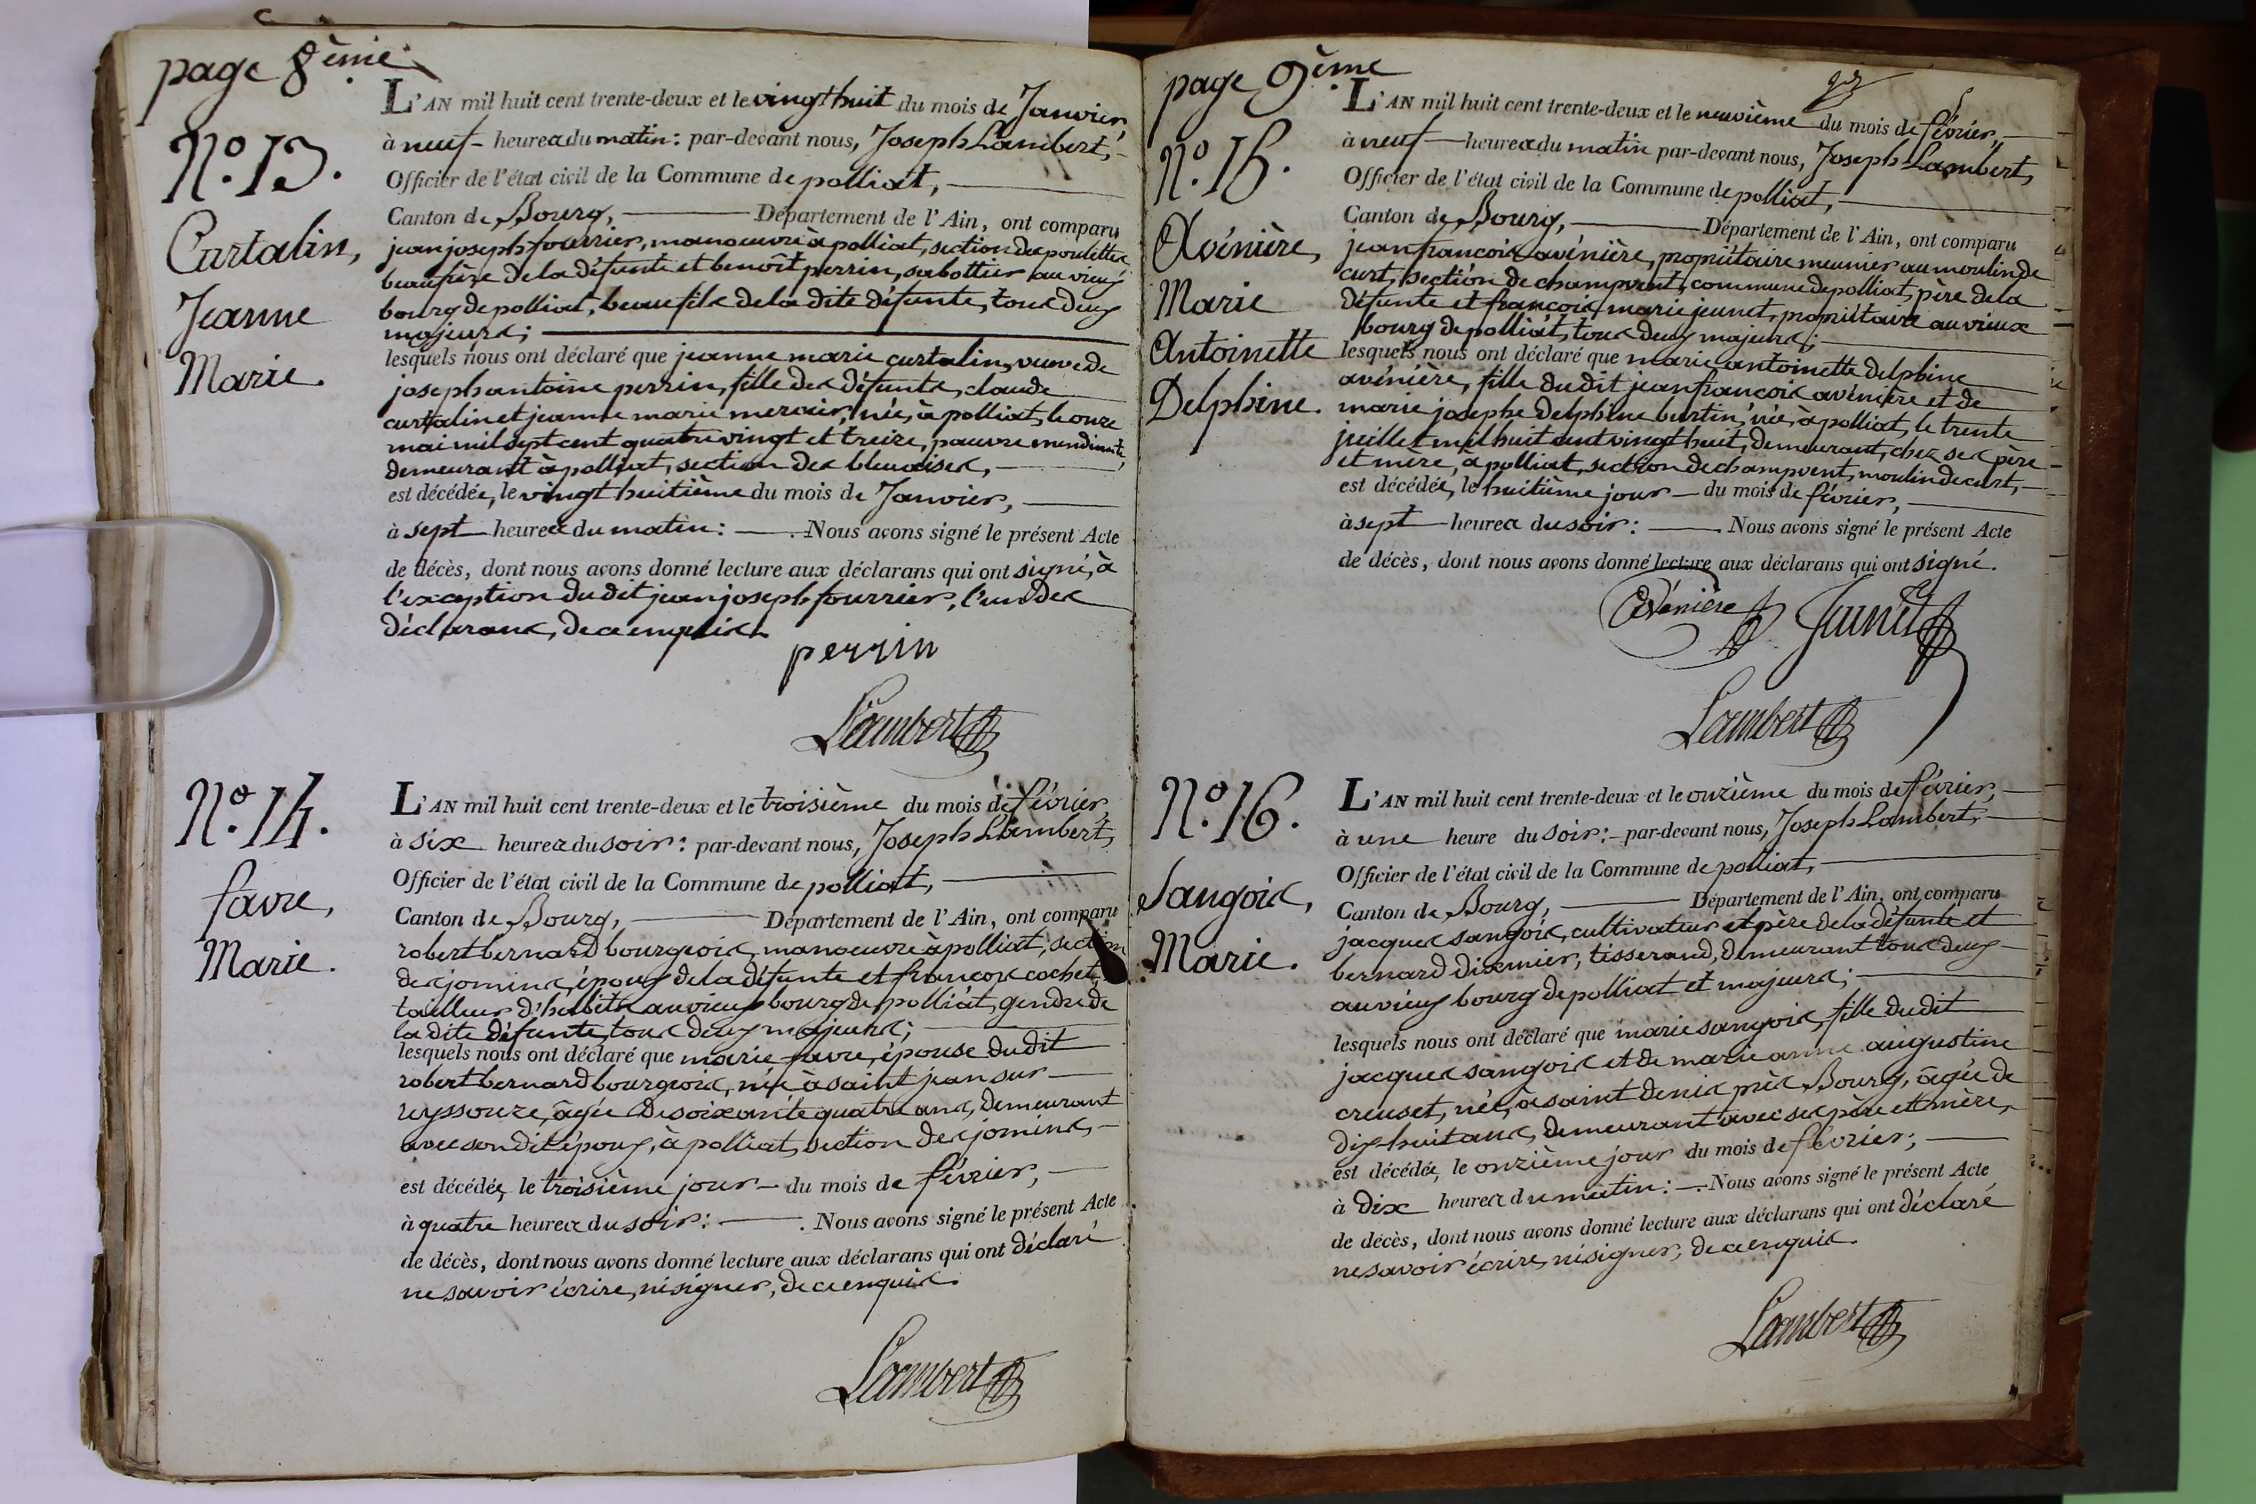 page 8ème.
N.º 13.
Curtalin,
Jeanne
Marie.
L'AN mil huit cent trente-deux et le vingt huit du mois de Janvier,
à neuf heures du matin: par-devant nous, Joseph Lambert,
Officier de l'état civil de la Commune de polliat,
Canton de Bourg, Département de l'Ain, ont comparu
jean joseph fourrier, manoeuvre à polliat, section des poulettes
beaufrère de la défunte et benoît perrin, sabottier au vieux
bourg de polliat, beaufils de la dite défunte, tous deux
majeurs;
lesquels nous ont déclaré que jeanne marie curtalin, veuve de
joseph antoine perrin, fille des défunts, claude
curtalin et jeanne marie mercier, née, à polliat, le onze
mai mil sept cent quatre vingt et treize, pauvre mendiante,
demeurant à polliat, section des bleuaises,
est décédée, le vingt huitième du mois de Janvier,
à sept heures du matin: Nous avons signé le présent Acte
de décès, dont nous avons donné lecture aux déclarans qui ont signé, à
l'exception du dit jean joseph fourrier, l'un des
déclarans, de ce enquis.
perrin
Lambert
N.º 14.
favre,
Marie.
L'AN mil huit cent trente-deux et le troisième du mois de février,
à six heures du soir: par-devant nous, Joseph Lambert,
Officier de l'état civil de la Commune de polliat,
Canton de Bourg, Département de l'Ain, ont comparu
robert bernard bourgeois, manoeuvre à polliat, section
des jomins, époux de la défunte et françois cochet,
tailleur d'habits au vieux bourg de polliat, gendre de
la dite défunte, tous deux majeurs;
lesquels nous ont déclaré que marie favre, épouse du dit
robert bernard bourgeois, née à saint jean sur
reyssouze, âgée de soixante quatre ans, demeurant
avec son dit époux, à polliat, section des jomins,
est décédée, le troisième jour du mois de février,
à quatre heures du soir: Nous avons signé le présent Acte
de décès, dont nous avons donné lecture aux déclarans qui ont déclaré
ne savoir écrire, ni signer, de ce enquis.
Lambert
page 9ème
N.º 15.
Avénière,
Marie
Antoinette
Delphine.
L'AN mil huit cent trente-deux et le neuvième du mois de février,
à neuf heures du matin par-devant nous, Joseph Lambert,
Officier de l'état civil de la Commune de polliat,
Canton de Bourg, Département de l'Ain, ont comparu
jean françois avénière, propriétaire meunier au moulin de
curt, section de champvent, commune de polliat, père de la
défunte et françois marie jeunet, propriétaire au vieux
bourg de polliat, tous deux majeurs;
lesquels nous ont déclaré que marie antoinette delphine
avénière, fille du dit jean françois avénière et de
marie josephe delphine burtin, née, à polliat, le trente
juillet mil huit cent vingt huit, demeurant, chez ses père
et mère, à polliat, section de champvent, moulin de curt,
est décédée, le huitième jour du mois de février,
à sept heures du soir: Nous avons signé le présent Acte
de décès, dont nous avons donné lecture aux déclarans qui ont signé.
Avénière Jeunet
Lambert
N.º 16.
Sangois,
Marie.
L'AN mil huit cent trente-deux et le onzième du mois de février,
à une heure du soir: par-devant nous, Joseph Lambert,
Officier de l'état civil de la Commune de polliat,
Canton de Bourg, Département de l'Ain, ont comparu
jacques sangois, cultivateur et père de la défunte et
bernard dixmier, tisserand, demeurant tous deux
au vieux bourg de polliat et majeurs;
lesquels nous ont déclaré que marie sangois, fille du dit
jacques sangois et de marie anne augustine
creuset, née, à saint denis près Bourg, âgée de
dix huit ans, demeurant avec ses père et mère,
est décédée, le onzième jour du mois de février;
à dix heures du matin: Nous avons signé le présent Acte
de décès, dont nous avons donné lecture aux déclarans qui ont déclaré
ne savoir écrire, ni signer, de ce enquis.
Lambert